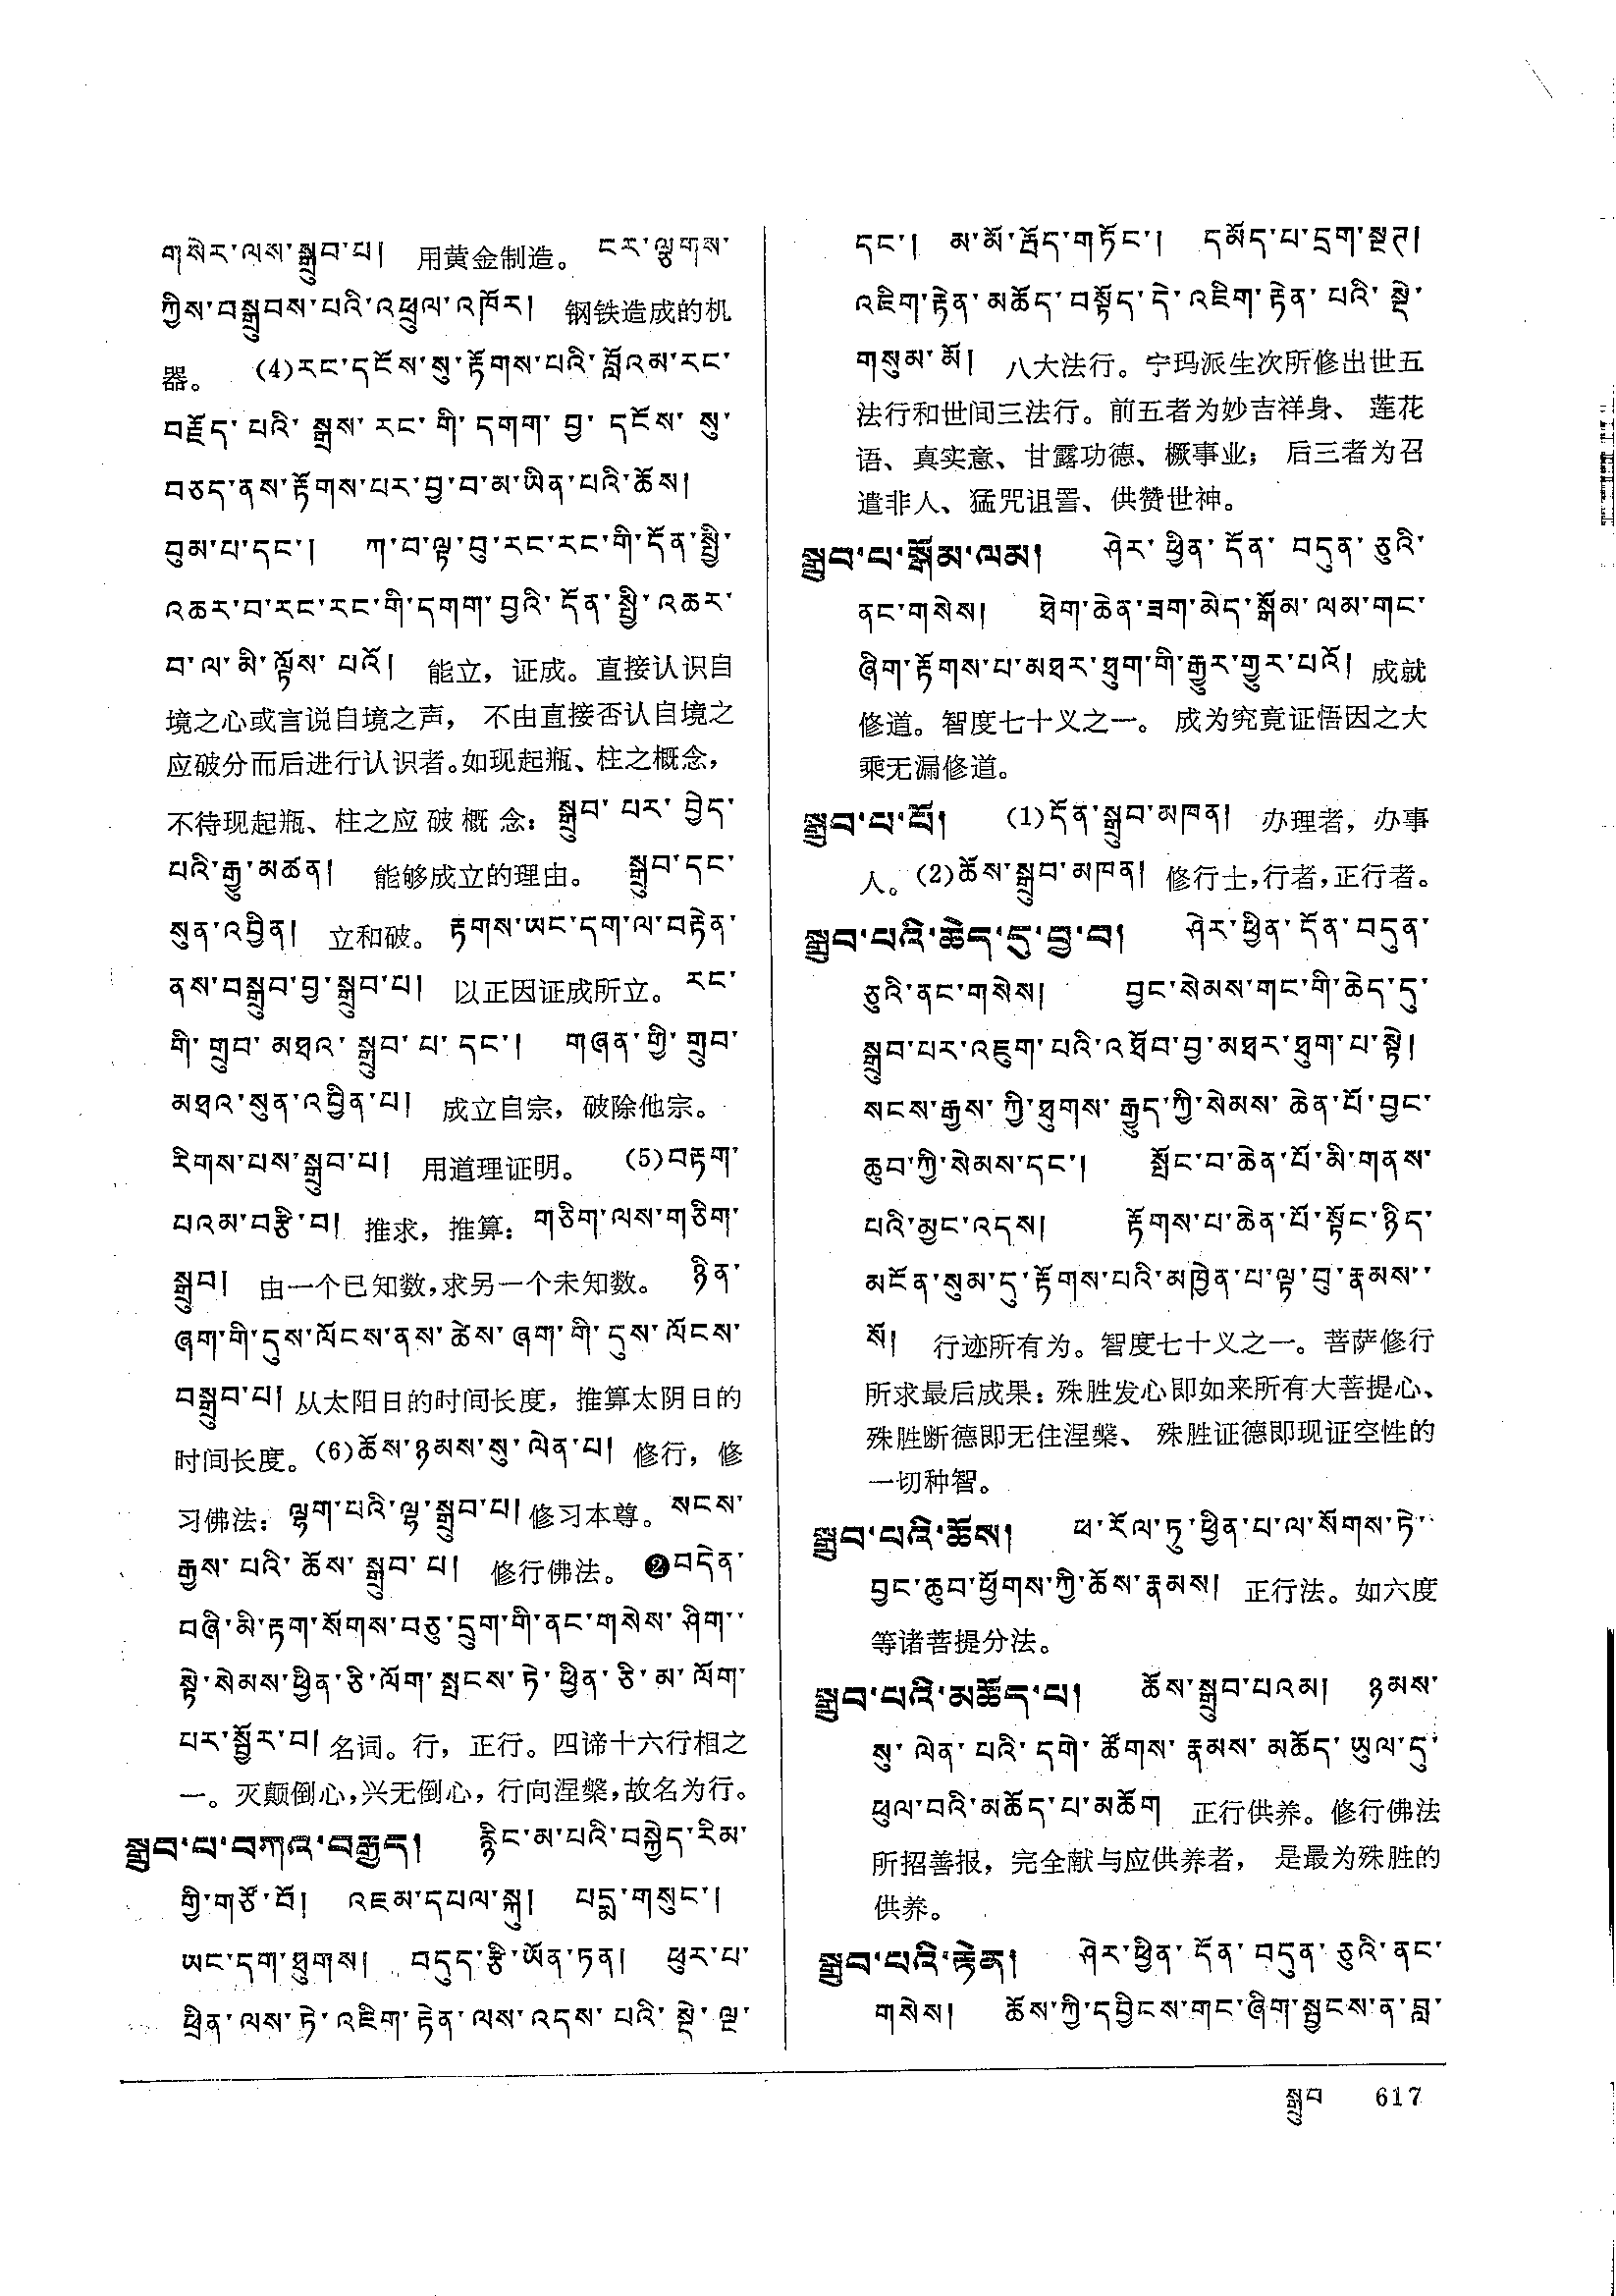 གསེར་ལས་སྒྲུབ་པ།  用黄金制造。 ངར་ལྕགས་
ཀྱིས་བསྒྲུབས་པའི་འཕྲུལ་འཁོར།  钢铁造成的机
器。 (4)རང་དངོས་སུ་རྟོགས་པའི་བློའམ་རང་
བརྗོད་པའི་སྒྲས་རང་གི་དགག་བྱ་དངོས་སུ་
བཅད་ནས་རྟོགས་པར་བྱ་བ་མ་ཡིན་པའི་ཆོས།
བུམ་པ་དང་།  ཀ་བ་ལྟ་བུ་རང་རང་གི་དོན་སྤྱི་
འཆར་བ་རང་རང་གི་དགག་བྱའི་དོན་སྤྱི་འཆར་
བ་ལ་མི་ལྟོས་པའོ།  能立，证成。直接认识自
境之心或言说自境之声， 不由直接否认自境之
应破分而后进行认识者。如现起瓶、柱之概念，
不待现起瓶、柱之应破概念：སྒྲུབ་པར་བྱེད་
པའི་རྒྱུ་མཚན།  能够成立的理由。 སྒྲུབ་དང་
སུན་འབྱིན།  立和破。 རྟགས་ཡང་དག་ལ་བརྟེན་
ནས་བསྒྲུབ་བྱ་སྒྲུབ་པ།  以正因证成所立。 རང་
གི་གྲུབ་མཐའ་སྒྲུབ་པ་དང་།  གཞན་གྱི་གྲུབ་
མཐའ་སུན་འབྱིན་པ།  成立自宗，破除他宗。
རིགས་པས་སྒྲུབ་པ།  用道理证明。 (5)བརྟག་
པའམ་བརྩི་བ།  推求，推算：གཅིག་ལས་གཅིག་
སྒྲུབ།  由一个已知数，求另一个未知数。 ཉིན་
ཞག་གི་དུས་ལོངས་ནས་ཚེས་ཞག་གི་དུས་ལོངས་
བསྒྲུབ་པ། 从太阳日的时间长度，推算太阴日的
时间长度。(6)ཆོས་ཉམས་སུ་ལེན་པ། 修行，修
习佛法：ལྷག་པའི་ལྷ་སྒྲུབ་པ། 修习本尊。 སངས་
རྒྱས་པའི་ཆོས་སྒྲུབ་པ།  修行佛法。 ❷བདེན་
བཞི་མི་རྟག་སོགས་བཅུ་དྲུག་གི་ནང་གསེས་ཤིག་
སྟེ་སེམས་ཕྱིན་ཅི་ལོག་སྤངས་ཏེ་ཕྱིན་ཅི་མ་ལོག་
པར་སྦྱོར་བ། 名词。行，正行。四谛十六行相之
一。灭颠倒心，兴无倒心，行向涅槃，故名为行。
སྒྲུབ་པ་བཀའ་བརྒྱད།  རྙིང་མ་པའི་བསྐྱེད་རིམ་
གྱི་གཙོ་བོ།  འཇམ་དཔལ་སྐུ།  པདྨ་གསུང་།
ཡང་དག་ཐུགས།  བདུད་རྩི་ཡོན་ཏན།  ཕུར་པ་
ཕྲིན་ལས་ཏེ་འཇིག་རྟེན་ལས་འདས་པའི་སྡེ་ལྔ་
དང་།  མ་མོ་རྦོད་གཏོང་།  དམོད་པ་དྲག་སྔགས།
འཇིག་རྟེན་མཆོད་བསྟོད་དེ་འཇིག་རྟེན་པའི་སྡེ་
གསུམ་མོ།  八大法行。宁玛派生次所修出世五
法行和世间三法行。前五者为妙吉祥身、莲花
语、真实意、甘露功德、橛事业； 后三者为召
遣非人、猛咒诅詈、供赞世神。
སྒྲུབ་པ་སྒོམ་ལམ།  ཤེར་ཕྱིན་དོན་བདུན་ཅུའི་
ནང་གསེས།  ཐེག་ཆེན་ཟག་མེད་སྒོམ་ལམ་གང་
ཞིག་རྟོགས་པ་མཐར་ཐུག་གི་རྒྱུར་གྱུར་པའོ། 成就
修道。智度七十义之一。 成为究竟证悟因之大
乘无漏修道。
སྒྲུབ་པ་པོ།  (1)དོན་སྒྲུབ་མཁན།  办理者，办事
人。(2)ཆོས་སྒྲུབ་མཁན། 修行士，行者，正行者。
སྒྲུབ་པའི་ཆེད་དུ་བྱ་བ།  ཤེར་ཕྱིན་དོན་བདུན་
ཅུའི་ནང་གསེས།  བྱང་སེམས་གང་གི་ཆེད་དུ་
སྒྲུབ་པར་འཇུག་པའི་འཐོབ་བྱ་མཐར་ཐུག་པ་སྟེ།
སངས་རྒྱས་ཀྱི་ཐུགས་རྒྱུད་ཀྱི་སེམས་ཆེན་པོ་བྱང་
ཆུབ་ཀྱི་སེམས་དང་།  སྤོང་བ་ཆེན་པོ་མི་གནས་
པའི་མྱང་འདས།  རྟོགས་པ་ཆེན་པོ་སྟོང་ཉིད་
མངོན་སུམ་དུ་རྟོགས་པའི་མཁྱེན་པ་ལྟ་བུ་རྣམས་
སོ།  行迹所有为。智度七十义之一。菩萨修行
所求最后成果：殊胜发心即如来所有大菩提心、
殊胜断德即无住涅槃、 殊胜证德即现证空性的
一切种智。
སྒྲུབ་པའི་ཆོས།  ཕ་རོལ་ཏུ་ཕྱིན་པ་ལ་སོགས་ཏེ་
བྱང་ཆུབ་ཕྱོགས་ཀྱི་ཆོས་རྣམས།  正行法。如六度
等诸菩提分法。
སྒྲུབ་པའི་མཆོད་པ།  ཆོས་སྒྲུབ་པའམ།  ཉམས་
སུ་ལེན་པའི་དགེ་ཚོགས་རྣམས་མཆོད་ཡུལ་དུ་
ཕུལ་བའི་མཆོད་པ་མཆོག  正行供养。修行佛法
所招善报，完全献与应供养者， 是最为殊胜的
供养。
སྒྲུབ་པའི་རྟེན།  ཤེར་ཕྱིན་དོན་བདུན་ཅུའི་ནང་
གསེས།  ཆོས་ཀྱི་དབྱིངས་གང་ཞིག་སྦྱངས་ན་བླ་
སྒྲུབ  617